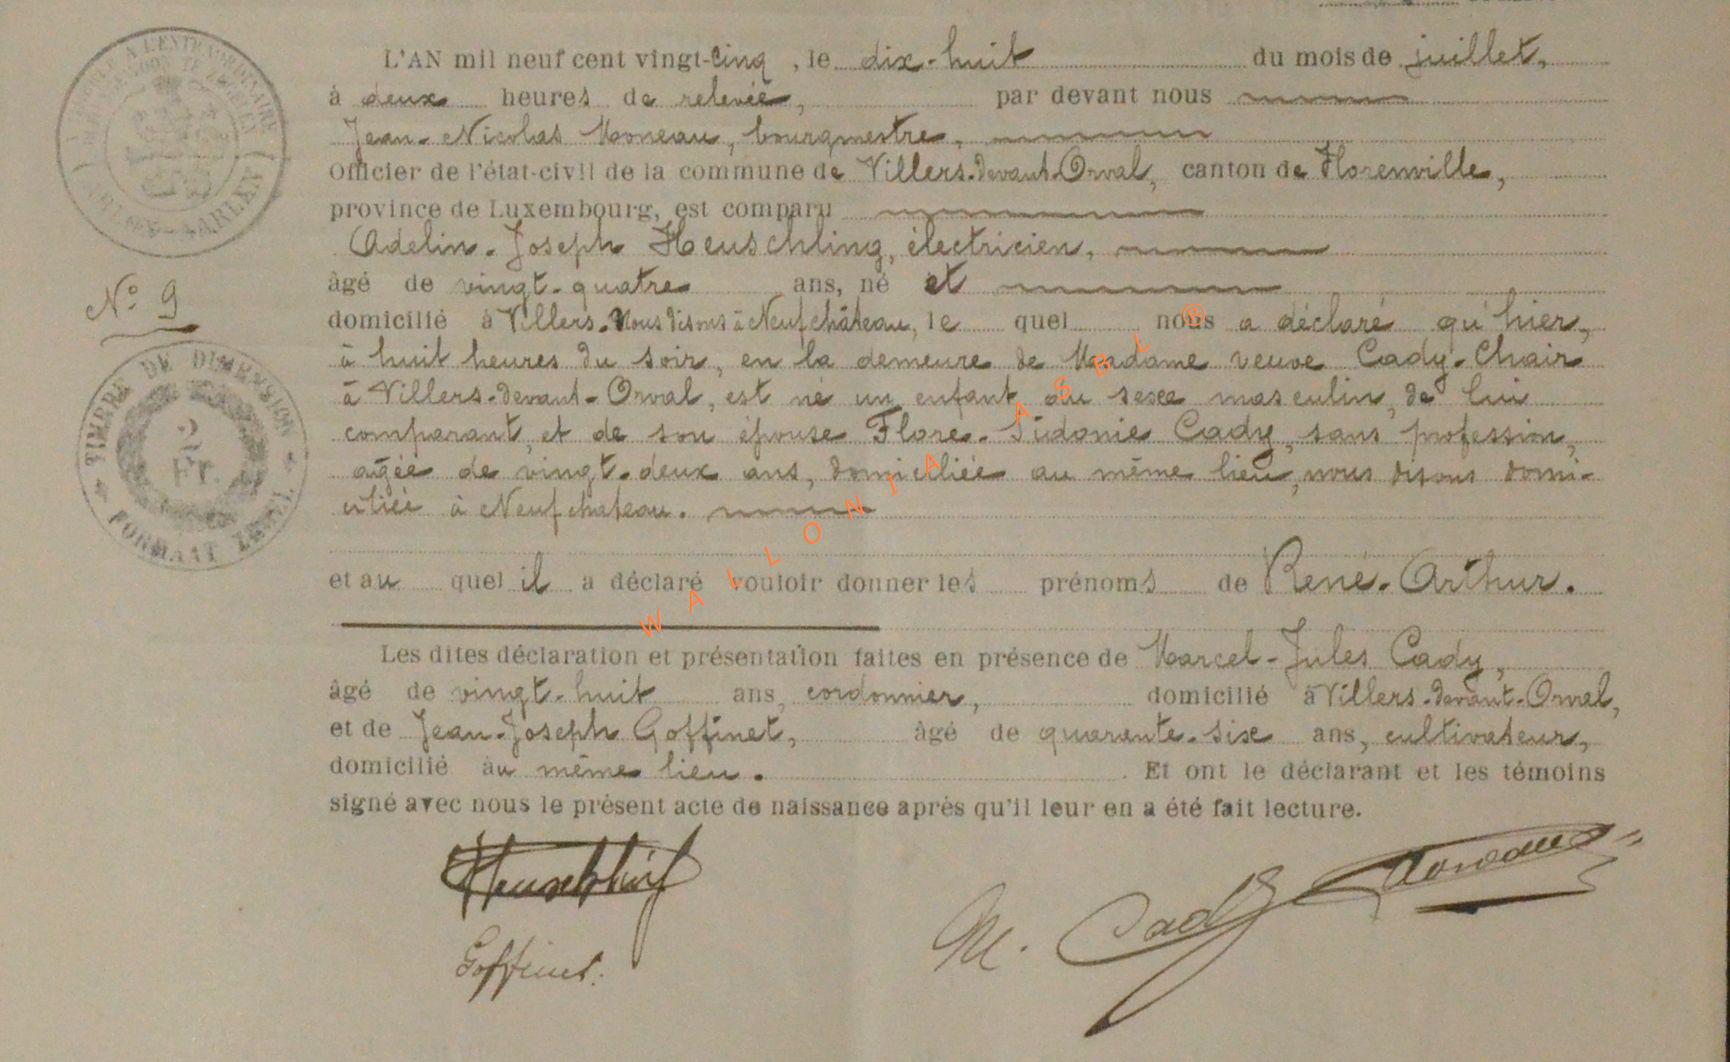 L'AN mil neuf cent vingt-cinq, le dix-huit du mois de juillet,
à deux heures de relevée, par devant nous
Jean-Nicolas Moneau, bourgmestre,
Officier de l'état-civil de la commune de Villers-devant-Orval, canton de Florenville,
province de Luxembourg, est comparu
Adelin-Joseph Heuschling, électricien,
N° 9
âgé de vingt-quatre ans, né et
domicilié à Villers-Nous disons à Neufchâteau, le quel nous a déclaré qu'hier,
à huit heures du soir, en la demeure de Madame veuve Cady-Chair
à Villers-devant-Orval, est né un enfant du sexe masculin, de lui
comparant, et de son épouse Flore-Sidonie Cady, sans profession,
agée de vingt-deux ans, domiciliée au même lieu, nous disons domi-
ciliée à Neufchateau.
TIMBRE DE DIMENSION
2 Fr.
FORMAAT ZEGEL
et au quel il a déclaré vouloir donner les prénoms de René-Arthur.
WALLONIA ASBL ®
Les dites déclaration et présentation faites en présence de Marcel-Jules Cady,
âgé de vingt-huit ans, cordonnier, domicilié à Villers-devant-Orval,
et de Jean-Joseph Goffinet, âgé de quarante-six ans, cultivateur,
domicilié au même lieu. Et ont le déclarant et les témoins
signé avec nous le présent acte de naissance après qu'il leur en a été fait lecture.
Heuschling
M. Cady
Moneau
Goffinet.